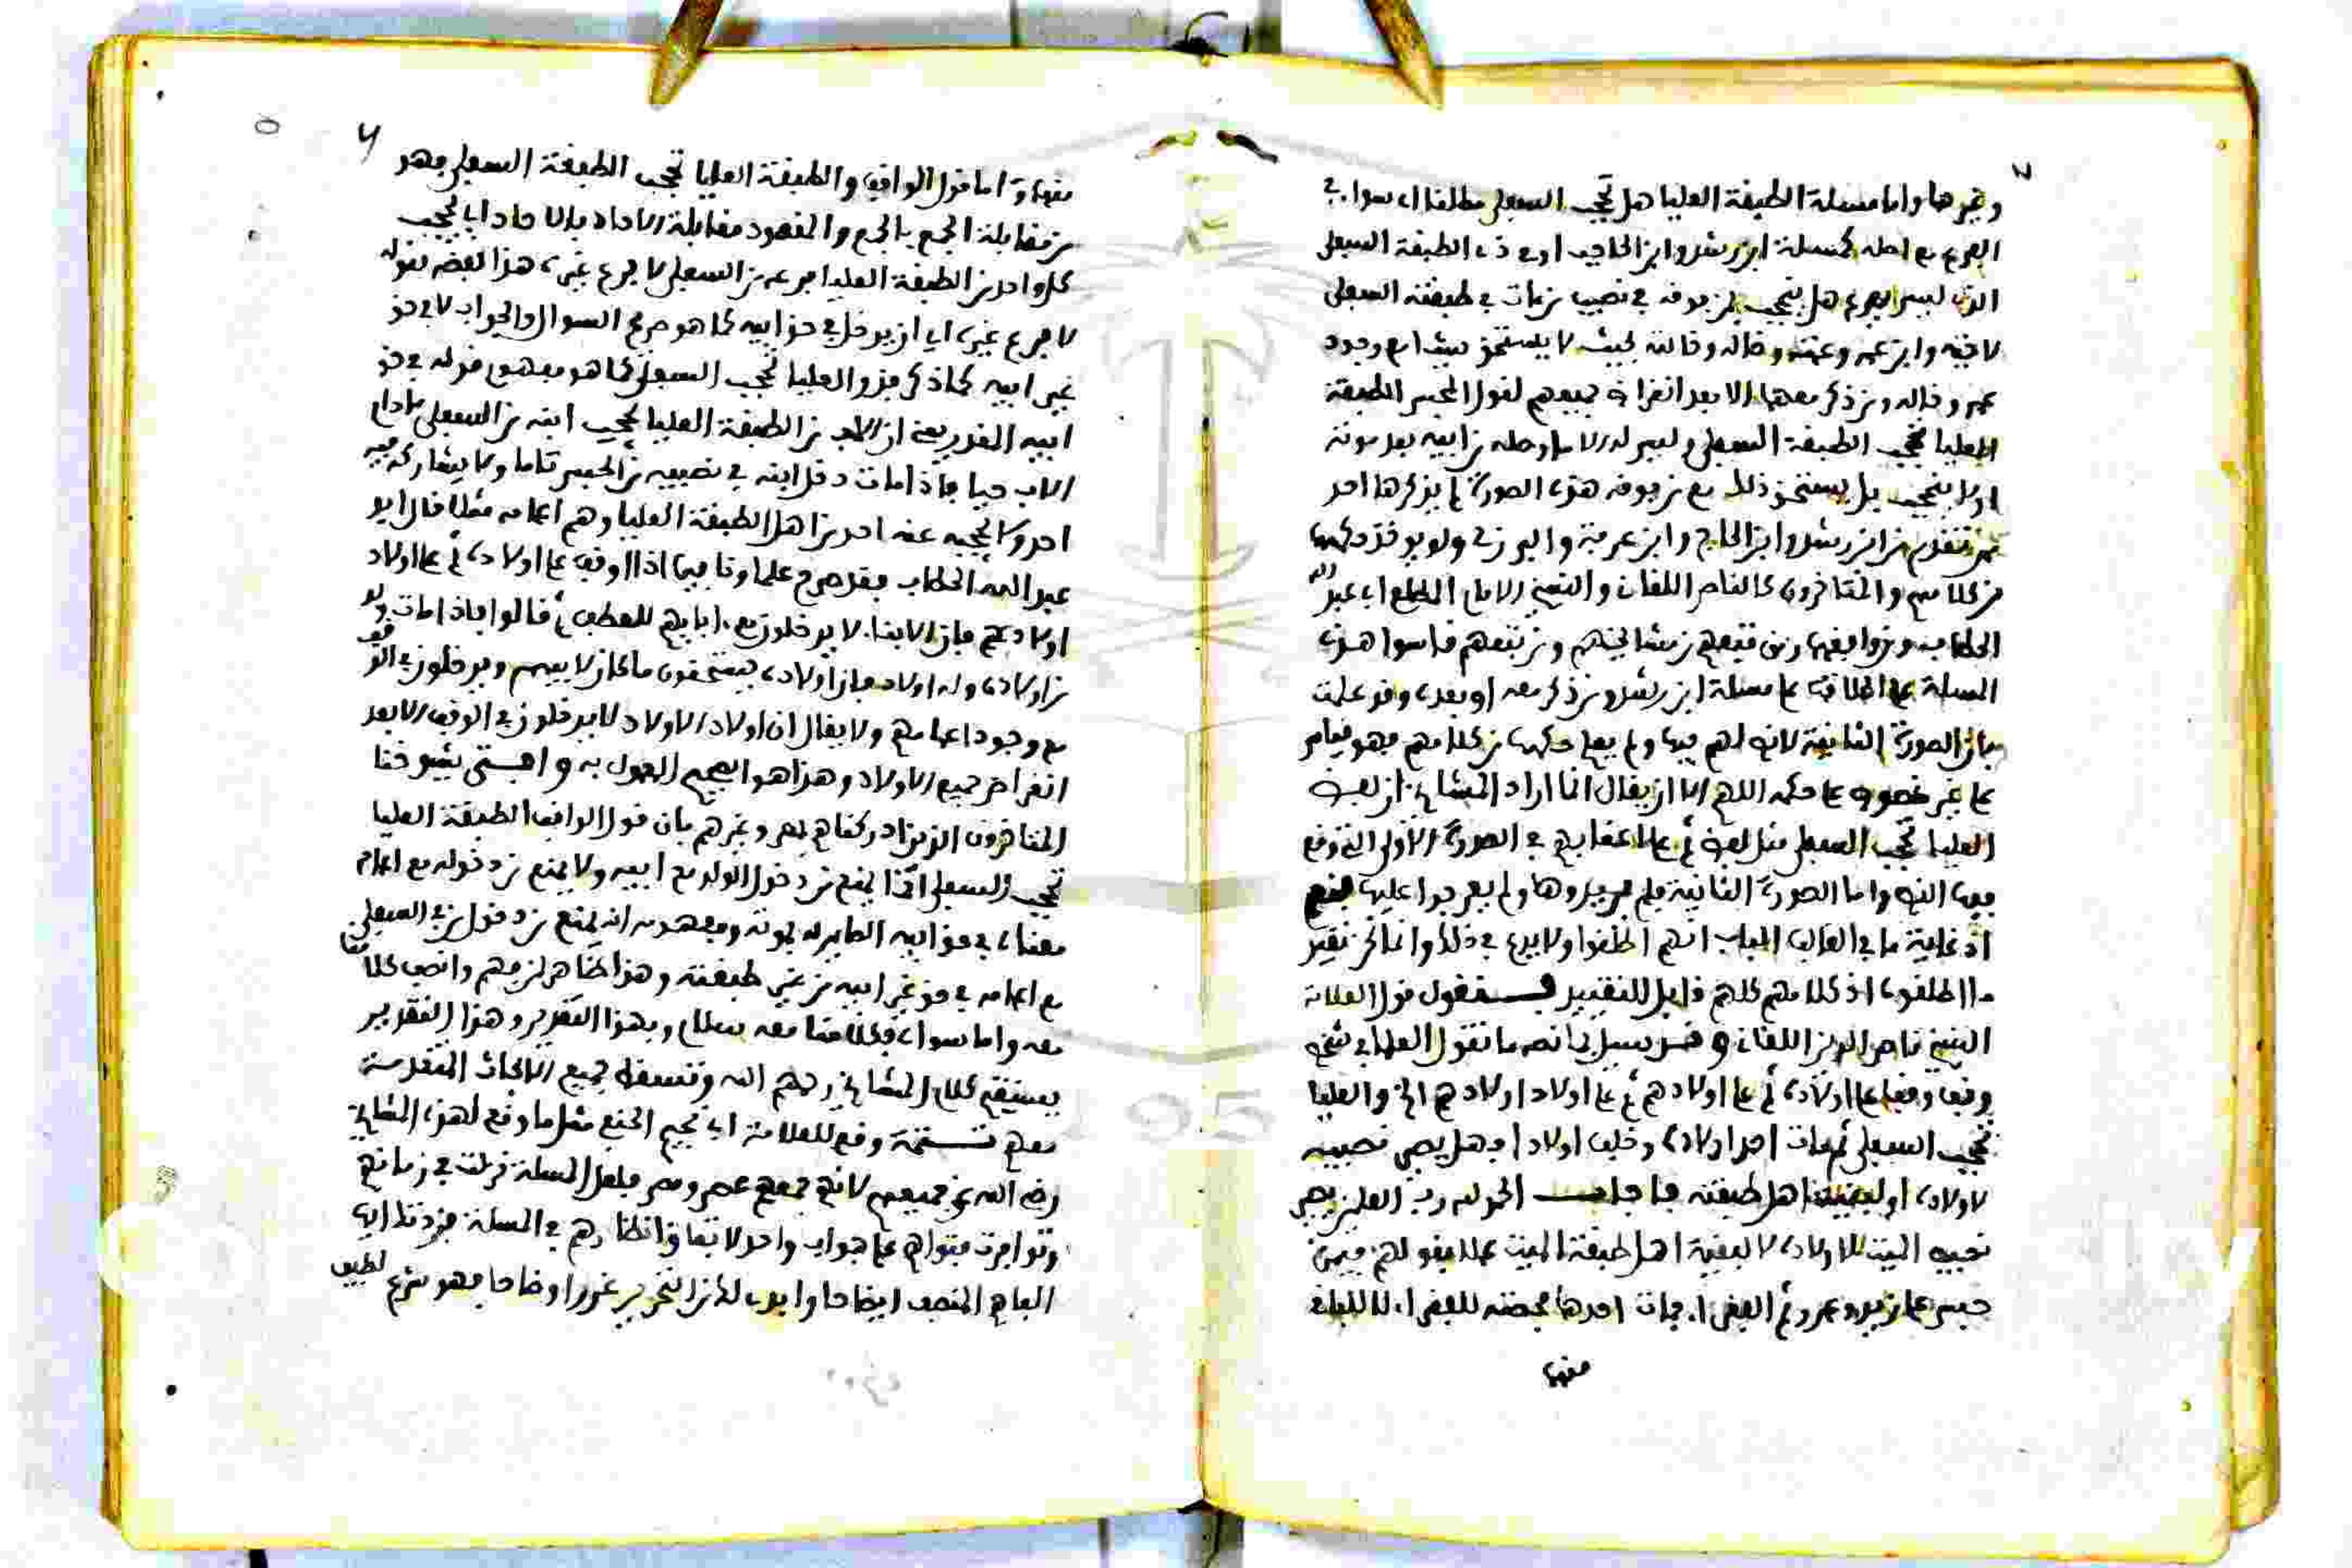 وغيرها واما مسئلة الطبقة العليا هل تحجب السفلى مطلقا اي سواء في
الفرع مع اصله كمسئلة ابن رشد وابن الحاجب او في ذي الطبقة السفلى
الذي ليس بفرع هل ينحجب بمن فوقه في نصيب من مات في طبقته السفلى
لاخيه وابن عمه وعمته وخاله وخالته بحيث لا يستحق شيئا مع وجود
عمه وخاله ومن ذكر معهما الا بعد انقراض جميعهم لقول المحبس الطبقة
العليا تحجب الطبقة السفلى وليس له الا ما وصله من ابيه بعد موته
او لا ينحجب بل يستحق ذلك مع من فوقه هذه الصورة لم يذكرها احد
ممن تقدم من ابن رشد وابن الحاج وابن عرفة والبرزلي ولا يوخذ حكمها
من كلامهم والمتاخرون كالناصر اللقاني والشيخ الامام المطلع ابي عبد الله
الحطاب ومن وافقهما ومن تبعهم من مشائخهم ومن تبعهم قاسوا هذه
المسئلة على اطلاقها على مسئلة ابن رشد ومن ذكر معه او بعده وقد علمت
بان الصورة الثانية لانص لهم فيها ولم يعلم حكمها من كلامهم فهو قياس
على غير منصوص على حكمه اللهم الا ان يقال انما اراد المشايخ ان لفظ
العليا تحجب السفلى مثل لفظ ثم على اعقابهم في الصورة الاولى التي وقع
فيها النص واما الصورة الثانية فلم يريدوها ولم يعرجوا عليها
اذ غاية ما في الباب انهم اطلقوا ولا بدع في ذلك وانما نحن نقيد
ما اطلقوه اذ كلامهم كلهم قابل للتقييد فنقول قول العلامة
الشيخ ناصر الدين اللقاني وقد سيل بما نصه ما تقول العلماء في شخص
وقف وقفا على اولاده ثم على اولادهم ثم على اولاد اولادهم الخ والعليا
تحجب السفلى ثم مات احد اولاده وخلف اولادا فهل يصير نصيبه
لاولاده او لبقية اهل طبقته فاجاب الحمد لله رب العلمين يصير
نصيب الميت للاولاد لا لبقية اهل طبقة الميت عملا بقولهم فيمن
حبس على زيد وعمرو ثم الفقراء فمات احدهما فحصته للفقراء لا للباقي
منهما
منهما واما قول الواقف والطبقة العليا تحجب الطبقة السفلى فهو
من مقابلة الجمع بالجمع والمقصود مقابلة الاحاد بالاحاد اي يحجب
كل واحد من الطبقة العليا فرعه من السفلى لا فرع غيره هذا لفظه بقوله
لا فرع غيره اي ان يدخل في حق ابيه كما هو صريح السوال والجواب لا في حق
غير ابيه كما ذكر فهو والعليا تحجب السفلى كما هو مفهوم قوله في حق
ابيه المقدر يعني ان الاب من الطبقة العليا يحجب ابنه من السفلى ما دام
الاب حيا فاذا مات دخل ابنه في نصيبه من الحبس تاما ولا يشاركه فيه
احد ولا يحجبه عنه احد من اهل الطبقة العليا وهم اعمامه مثلا قال ابو
عبد الله الحطاب فقد صرح علماونا فيما اذا وقف على اولاده ثم على اولاد
اولادهم فان الابناء لا يدخلون مع ابايهم للعطف ثم قالوا فاذا مات ولد
من اولاده وله اولاد فان اولاده يستحقون ما كان لابيهم ويدخلون في الوقف
مع وجود اعمامهم ولا يقال ان اولاد الاولاد لا يدخلون في الوقف الا بعد
انقراض جميع الاولاد وهذا هو الصحيح المعمول به وافتى شيوخنا
المتاخرون الذين ادركناهم بمصر وغيرهم بان قول الواقف الطبقة العليا
تحجب السفلى انما يمنع من دخول الولد مع ابيه ولا يمنع من دخوله مع اعمامه
معناه في حق ابيه الصاير له بموته ومفهومه انه يمنع من دخول من في السفلى
مع اعمامه في حق غير ابيه من غير طبقته وهذا ظاهر لمن فهم وانصف كلامنا
معه واما سواه فكلامنا معه سلام وبهذا التقرير وهذا التقدير
يستقيم كلام المشايخ رحمهم الله وتسقط جميع الابحاث المتقدمة
معهم تتمة وقع للعلامة ابن نجيم الحنفي مثل ما وقع لهذه المشايخ
رضي الله عن جميعهم لانهم جمعهم عصر ومصر فلعل المسئلة نزلت في زمانهم
وتوافرت فتواهم على جواب واحد لاتفاق انظارهم في المسئلة فزدنا ايها
الفاهم المنصف ايضاحا وابدى لك من التحرير غررا وضاحا فهو شرع لطيف